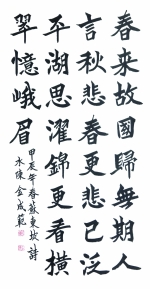 春来故國歸無期人
言秋悲春更悲已泛
平湖思濯錦更看橫
翠憶峨眉
甲辰年春蘇東坡詩
金成範